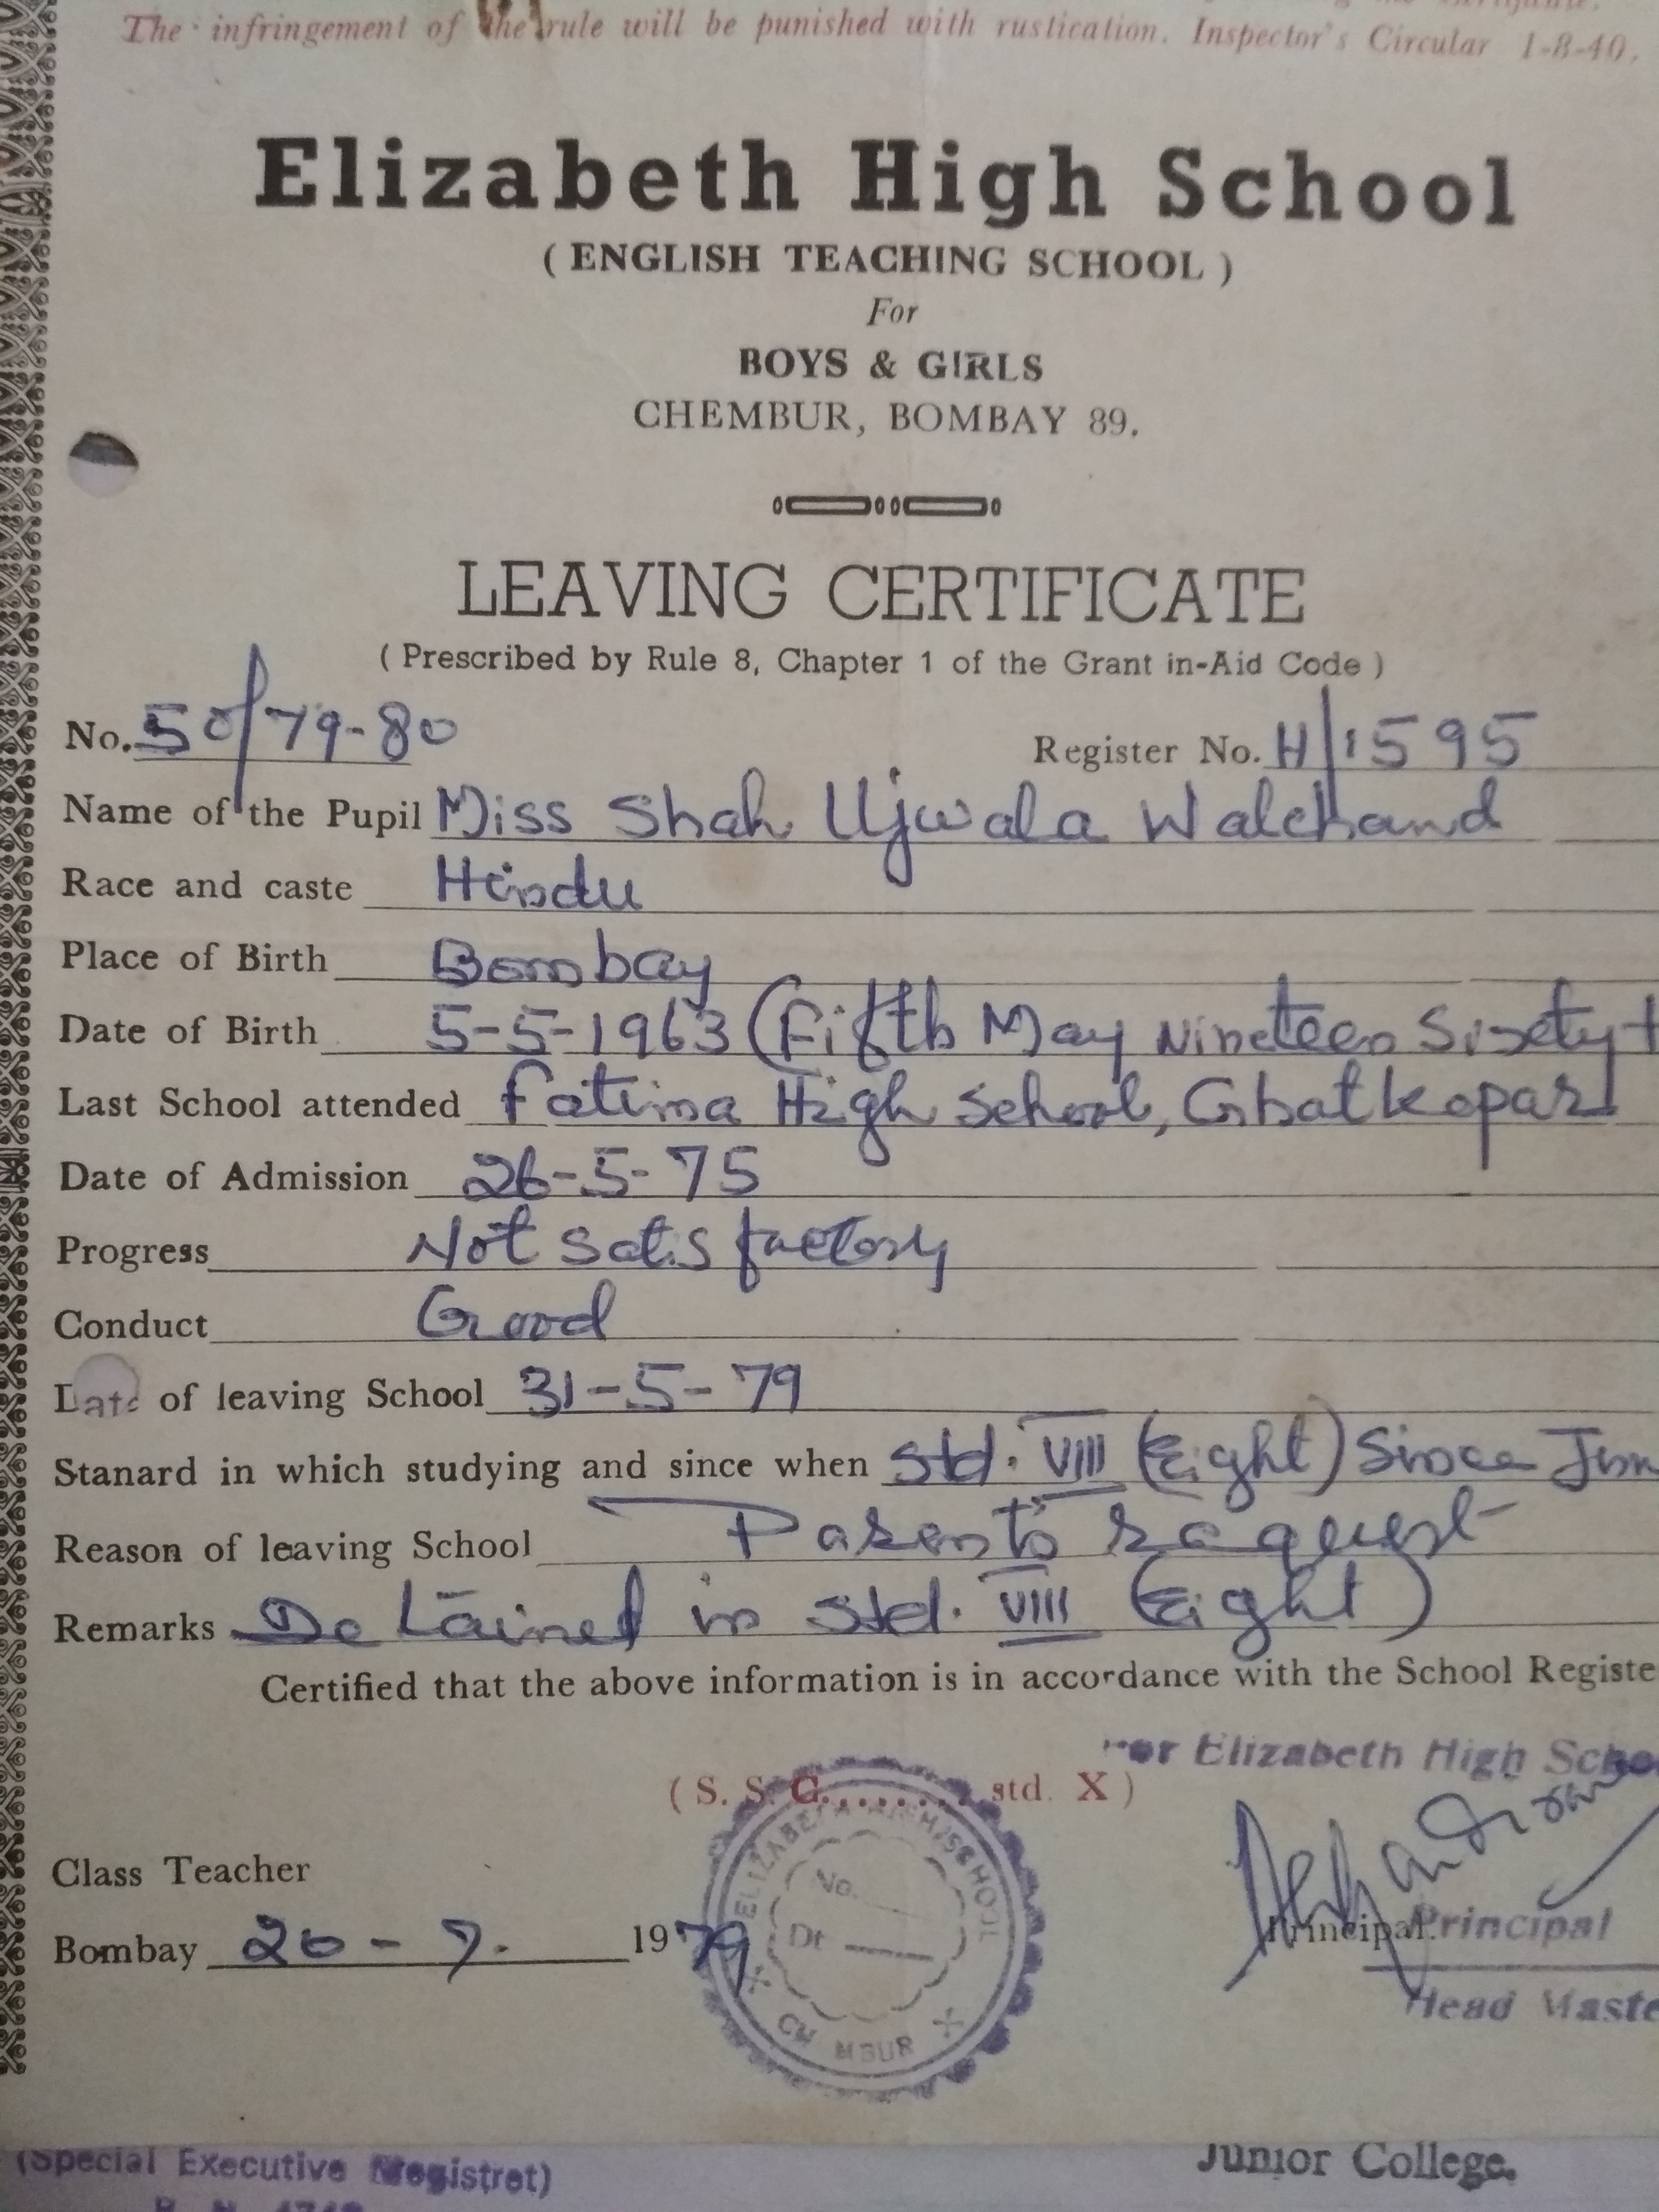 The infringement of the rule will be punished with rustication. Inspector's Circular 1-8-40.
Elizabeth High School
( ENGLISH TEACHING SCHOOL )
For
BOYS & GIRLS
CHEMBUR, BOMBAY 89.
LEAVING CERTIFICATE
( Prescribed by Rule 8, Chapter 1 of the Grant in-Aid Code )
No. 50/79-80 Register No. H/1595
Name of the Pupil Miss Shah Ujwala Walchand
Race and caste Hindu
Place of Birth Bombay
Date of Birth 5-5-1963 (Fifth May Nineteen Sixety t
Last School attended Fatima High School, Ghatkopar
Date of Admission 26-5-75
Progress Not satisfactory
Conduct Good
Date of leaving School 31-5-79
Stanard in which studying and since when Std. VIII (Eight) Since Jun
Reason of leaving School Parent's request
Remarks Detained in Std. VIII (Eight)
Certified that the above information is in accordance with the School Registe
For Elizabeth High Schoo
( S. S. C........ std. X )
ELIZABETH HIGH SCHOOL
No.
Dt
CHEMBUR
Class Teacher
Principal. Principal
Bombay 20-7. 1979
Head Maste
(Special Executive Megistret)
Junior College.